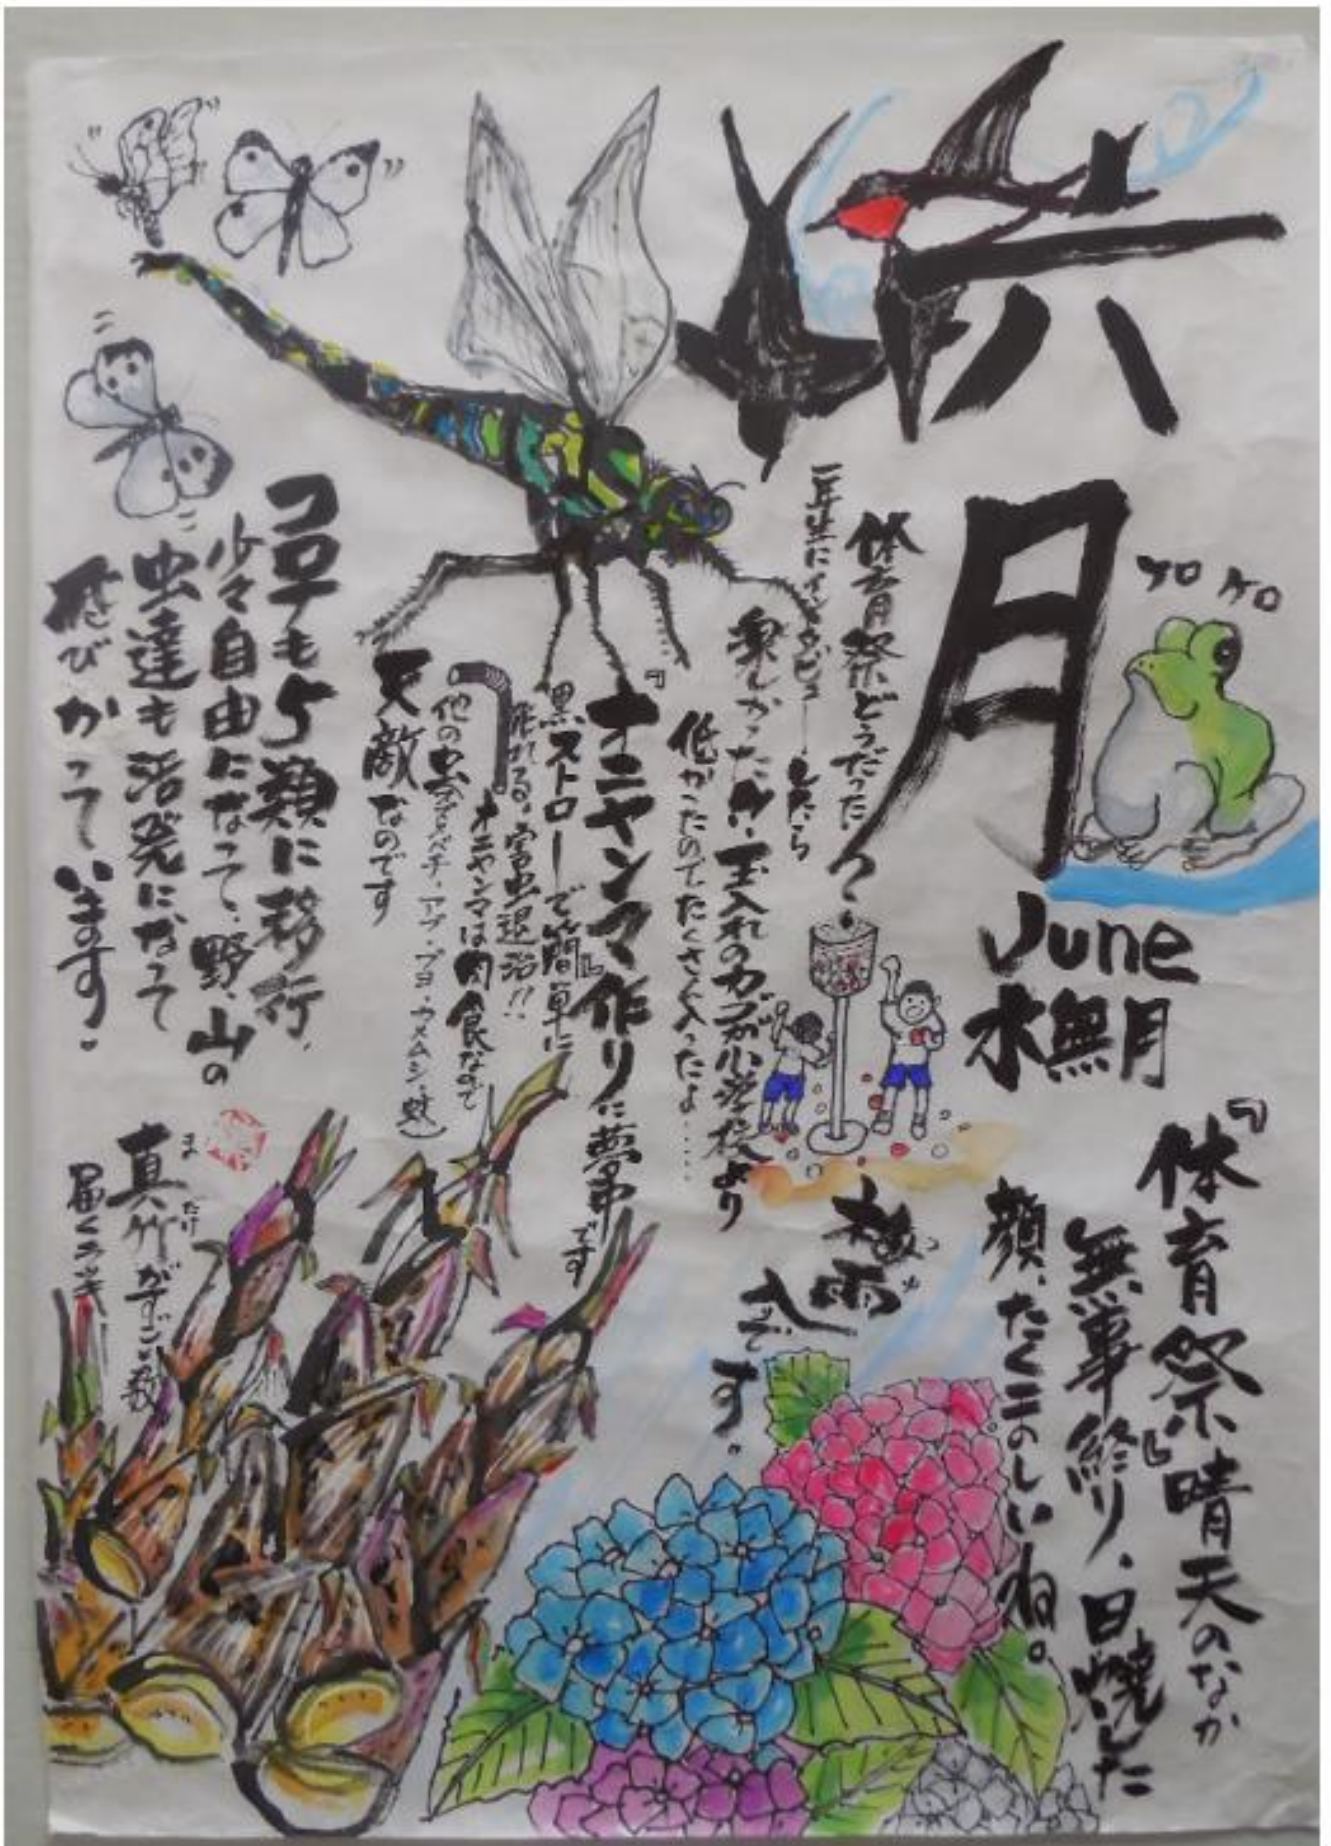 六月
ケロ ケロ
June
水無月
『体育祭』晴天のなか
無事終り、日焼した
顔、たくましいね。
梅雨
つゆ
入です。
体育祭どうだった？
一年生にインタビューしたら
楽しかった!!玉入れのカゴが小学校より
低かったのでたくさん入ったよ……
『オニヤンマ』作りに夢中です
黒ストローで簡単に
作れる。害虫退治!!
オニヤンマは肉食なので
他の虫
ハチ・アブ・ブヨ・カメムシ・蚊)
天敵なのです
コロナも5類に移行、
少々自由になって、野、山の
虫達も活発になって
飛びかっています。
真竹がすごい数
ま たけ
届く